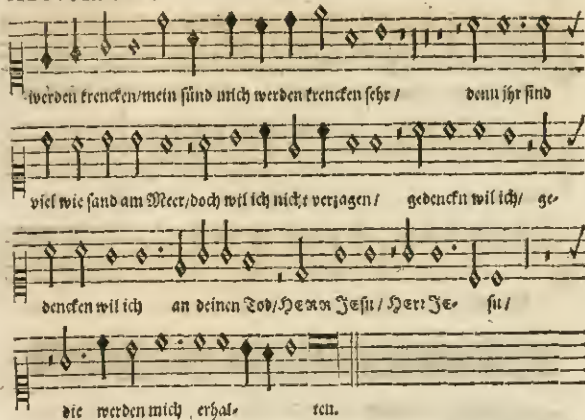 werden krencken/mein sünd mich werden krencken sehr/ denn jhr sind
viel wie sand am Meer/doch wil ich nicht verzagen/ gedenckn wil ich/ ge-
dencken wil ich an deinen Tod/HErr JEsu/ HErr JE- su/
die werden mich erhal- ten.